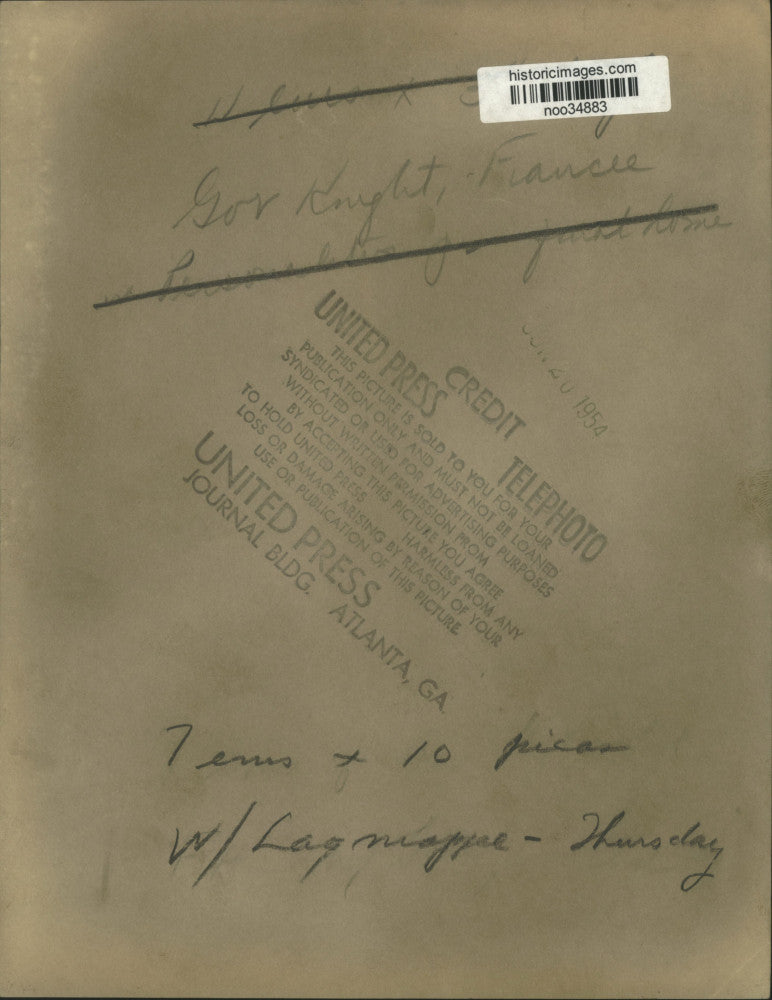 historicimages.com
noo34883
Gov Knight, Fiancee
guest home
JUN 20 1954
UNITED PRESS
CREDIT
TELEPHOTO
THIS PICTURE IS SOLD TO YOU FOR YOUR
PUBLICATION ONLY AND MUST NOT BE LOANED
SYNDICATED OR USED FOR ADVERTISING PURPOSES
WITHOUT WRITTEN PERMISSION FROM
BY ACCEPTING THIS PICTURE YOU AGREE
TO HOLD UNITED PRESS HARMLESS FROM ANY
LOSS OR DAMAGE ARISING BY REASON OF YOUR
USE OR PUBLICATION OF THIS PICTURE
UNITED PRESS
JOURNAL BLDG. ATLANTA, GA.
7 ems x 10 picas
W/ Lagniappe - Thursday